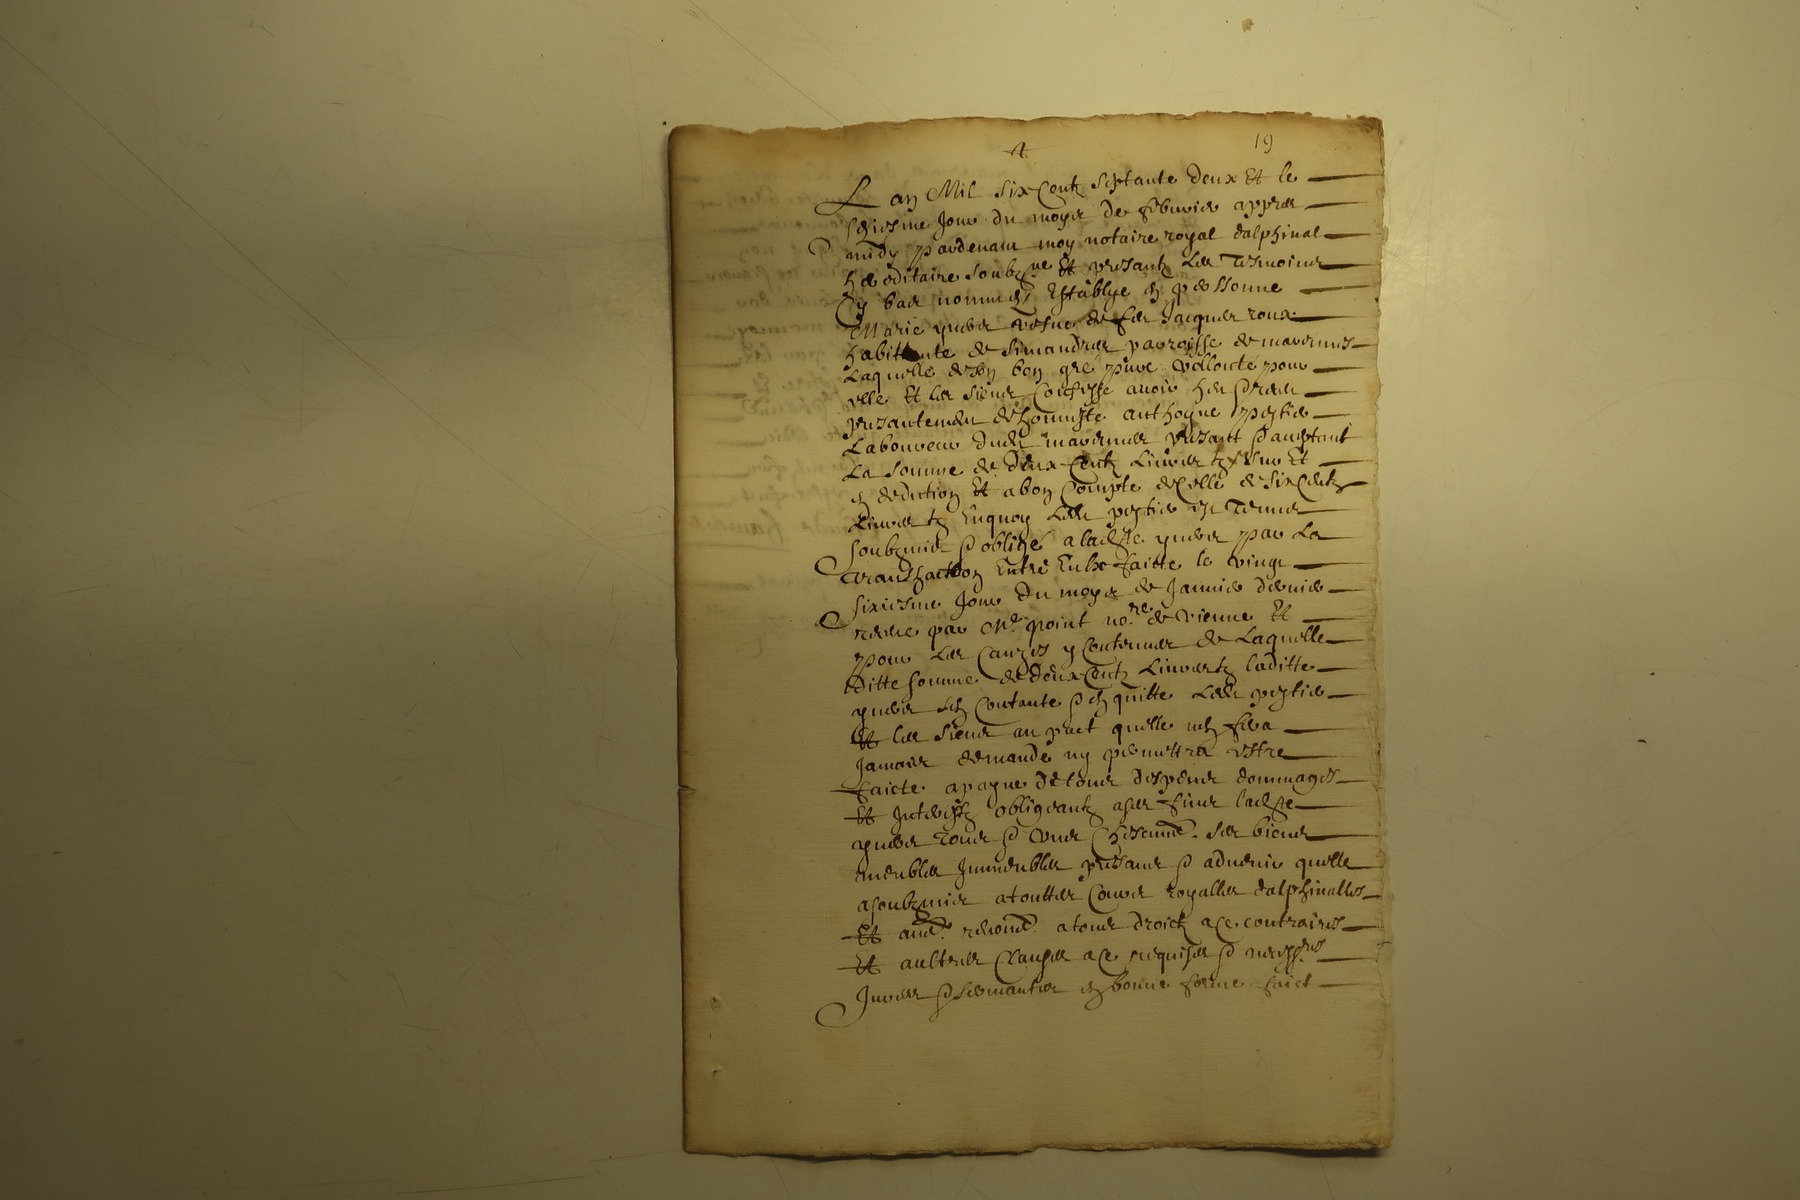 4 19
Lan Mil six Centz septante deux Et le
seiziesme Jour du moys de febvrier appres
midy pardevant moy notaire royal dalphinal
hereditaire soubzne Et presantz les tesmoins
Cy bas nommes Establye en personne
Marie yvver vefve de feu Jacques roux
habittante de simandres parroisse de marennes
Laquelle de son bon gre pure vollonte pour
elle Et les siens Confesse avoir heu
presantement de honneste anthoyne
Laboureur dudt marennes presant & aceptant
La somme de deux Centz Livres tz Et
en deduction Et a bon Compte de Celle de six Centz
Livres tz Enquoy Ledt est tenu
soubzmis & oblige a ladte yvver par La
transhaction Entre Eulx faitte le vingt
sixiesme Jour du moys de Janvier dernier
receue par Me point nore de vienne Et
pour Les Causes y Contenues de Laquelle
ditte somme de deux Centz Livres tz laditte
yvver sen Contante & en quitte Ledt
Et les siens au pact quelle nen fera
Jamais demande ny permettra estre
faicte a payne de tous despens dommages
Et Interestz obligeantz a ses fins ladte
yvver tous & Uns Chescuns ses biens
meubles Immeubles presans & advenir quelle
a soubzmis a touttes Cours royalles dalphinalles
Et renonce a tous droictz a Ce contraires
Et aultres Clauses a Ce requises & necessres
Jures & sermantes en bonne forme faict